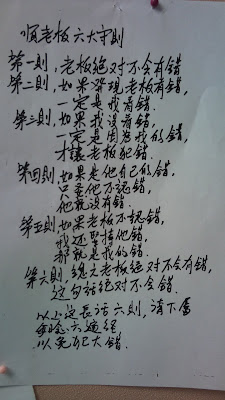 顺老板六大守则
第一则,老板绝对不会有错
第二则,如果发现老板有错,
一定是我看错.
第三则,如果我没看错,
一定是因为我的错,
才让老板犯错.
第四则,如果是他自己的错,
只要他不认错,
他就没有错.
第五则如果老板不认错,
我还坚持他错,
那就是我的错.
第六则,总之老板绝对不会有错,
这句话绝对不会错.
以上这长话六则,请下属
六遍
以免犯大错.